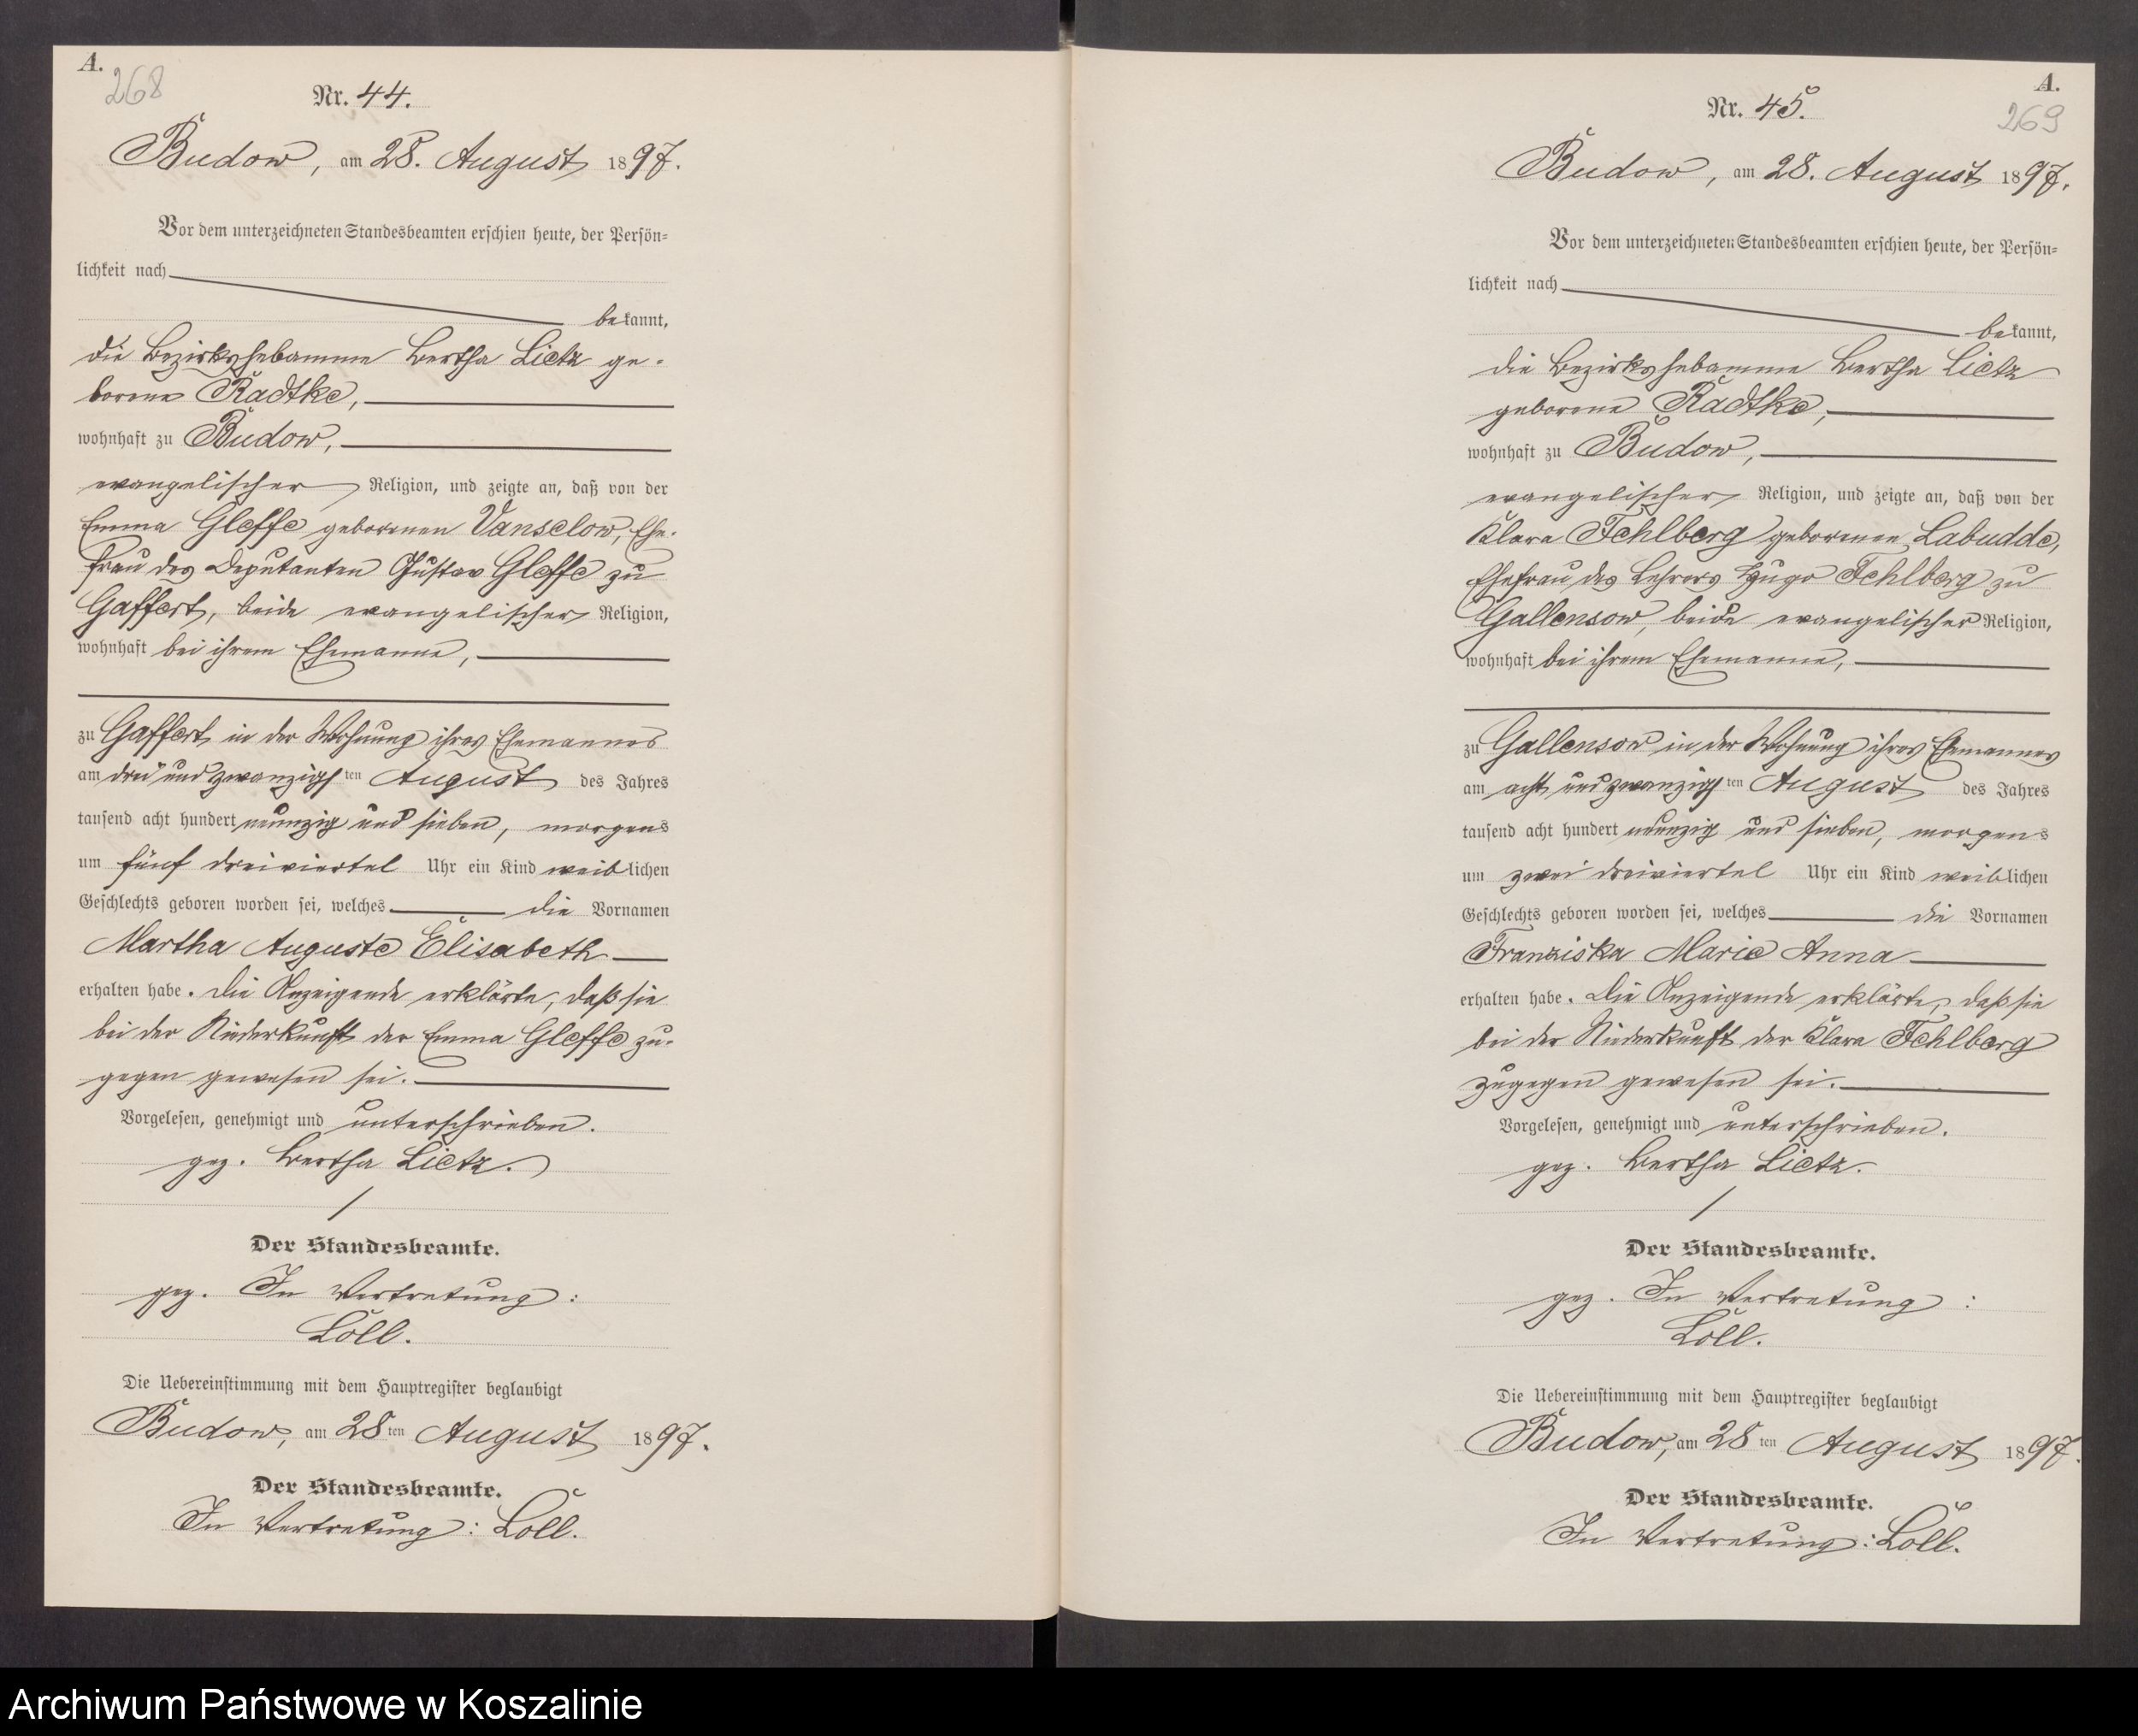 A.
268
Nr. 44.
Budow, am 28. August 1897.
Vor dem unterzeichneten Standesbeamten erschien heute, der Persön=
lichkeit nach
bekannt,
die Bezirkshebamme Bertha Lietz ge-
borene Radtke,
wohnhaft zu Budow,
evangelischer Religion, und zeigte an, daß von der
Emma Gleffe geborenen Vanselow, Ehe-
frau des Deputanten Gustav Gleffe zu
Gaffert, beide evangelischer Religion,
wohnhaft bei ihrem Ehemanne,
zu Gaffert in der Wohnung ihres Ehemannes
am drei und zwanzigsten August des Jahres
tausend acht hundert neunzig und sieben, morgens
um fünf dreiviertel Uhr ein Kind weiblichen
Geschlechts geboren worden sei, welches die Vornamen
Martha Auguste Elisabeth
erhalten habe. Die Anzeigende erklärte, daß sie
bei der Niederkunft der Emma Gleffe zu-
gegen gewesen sei.
Vorgelesen, genehmigt und unterschrieben.
gez. Bertha Lietz.
Der Standesbeamte.
gez. In Vertretung:
Loll.
Die Uebereinstimmung mit dem Hauptregister beglaubigt
Budow, am 28ten August 1897.
Der Standesbeamte.
In Vertretung: Loll.
A.
269
Nr. 45.
Budow, am 28. August 1897.
Vor dem unterzeichneten Standesbeamten erschien heute, der Persön=
lichkeit nach
bekannt,
die Bezirkshebamme Bertha Lietz
geborene Radtke,
wohnhaft zu Budow,
evangelischer Religion, und zeigte an, daß von der
Klara Fehlberg geborenen Labudde,
Ehefrau des Lehrers Hugo Fehlberg zu
Gallensow, beide evangelischer Religion,
wohnhaft bei ihrem Ehemanne,
zu Gallensow in der Wohnung ihres Ehemannes
am acht und zwanzigsten August des Jahres
tausend acht hundert neunzig und sieben, morgens
um zwei dreiviertel Uhr ein Kind weiblichen
Geschlechts geboren worden sei, welches die Vornamen
Franziska Marie Anna
erhalten habe. Die Anzeigende erklärte, daß sie
bei der Niederkunft der Klara Fehlberg
zugegen gewesen sei.
Vorgelesen, genehmigt und unterschrieben.
gez. Bertha Lietz.
Der Standesbeamte.
gez. In Vertretung:
Loll.
Die Uebereinstimmung mit dem Hauptregister beglaubigt
Budow, am 28ten August 1897.
Der Standesbeamte.
In Vertretung: Loll.
Archiwum Państwowe w Koszalinie